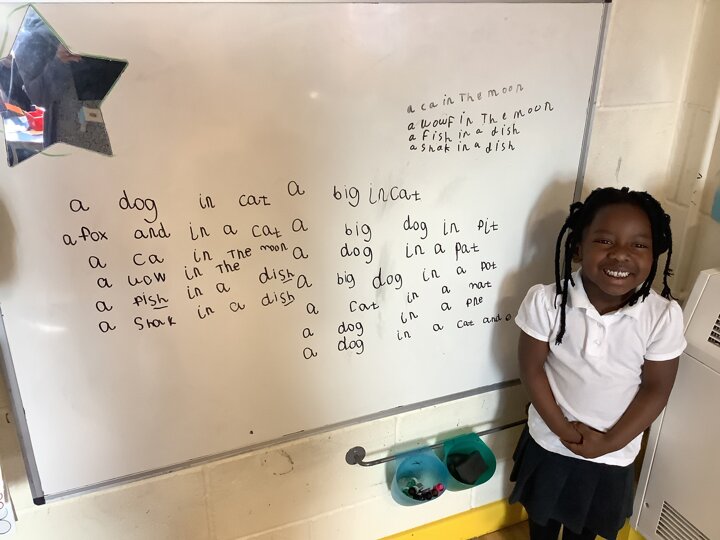 a ca in The moon
a wowf in The moon
a fish in a dish
a shak in a dish
a dog in cat
a fox and in a cat
a ca in The moon
a wow in The
a fish in a dish
a shak in a dish
a big in cat
a big dog in pit
a dog in a pat
a big dog in a pot
a cat in a mat
a dog in a pne
a dog in a cat and